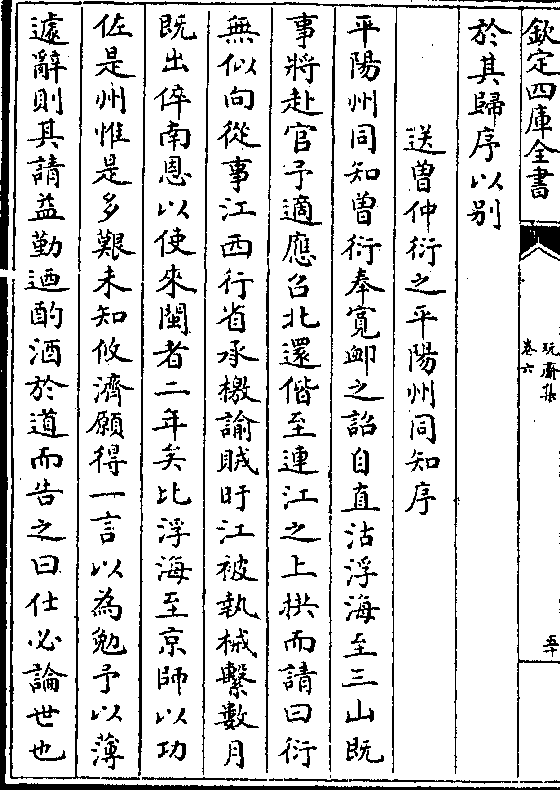 欽定四庫全書
玩齋集
卷六
五十
於其歸序以别
送曾仲衍之平陽州同知序
平陽州同知曾衍奉寛䘏之詔自直沽浮海至三山既
事將赴官予適應召北還偕至連江之上拱而請曰衍
無似向從事江西行省承檄諭賊盱江被執械繫數月
既出倅南恩以使來閩者二年矣比浮海至京師以功
佐是州惟是多艱未知攸濟願得一言以為勉予以薄
遽辭則其請益勤迺酌酒於道而告之曰仕必論世也